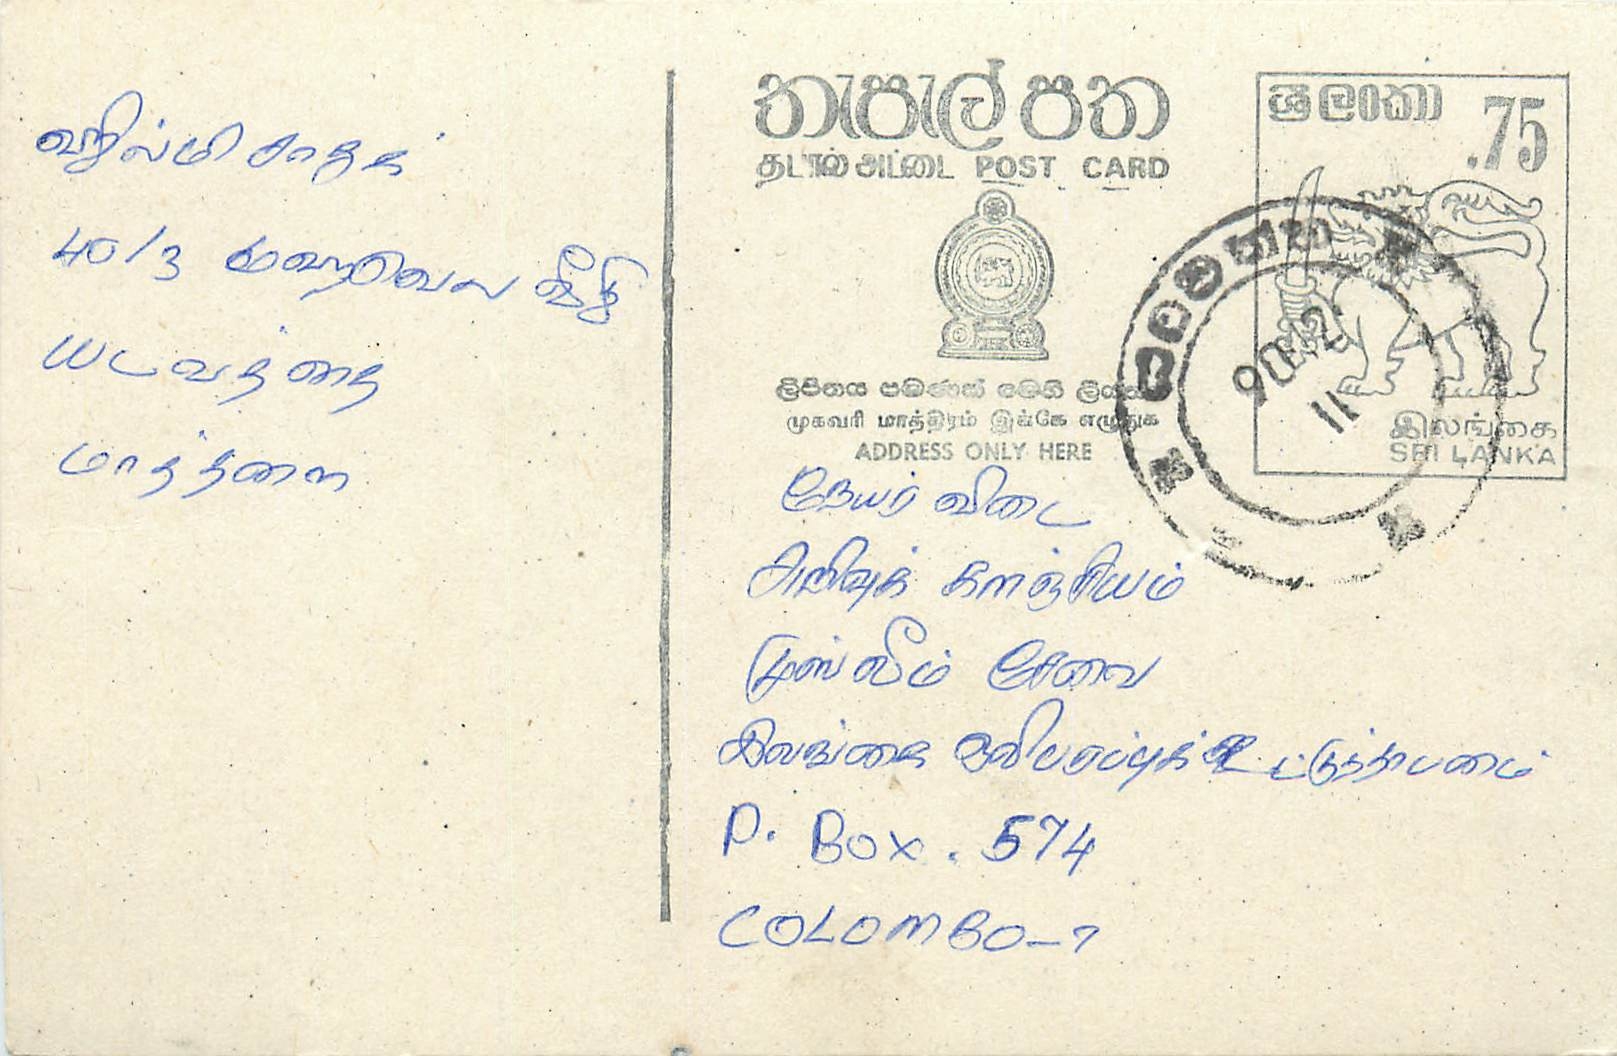 ஹில்மி சாதக்
40/3 மஹவெல வீதி
யடவத்தை
மாத்தளை
තැපැල් පත
தபால் அட்டை POST CARD
ලිපිනය පමණක් මෙහි ලියන්න
முகவரி மாத்திரம் இங்கே எழுதுக
ADDRESS ONLY HERE
ශ්‍රී ලංකා .75
இலங்கை
SRI LANKA
යටවත්ත
90.12
11
நேயர் விடை
அறிவுக் களஞ்சியம்
முஸ்லீம் சேவை
இலங்கை ஒலிபரப்புக் கூட்டுத்தாபனம்
P. Box. 574
COLOMBO-7